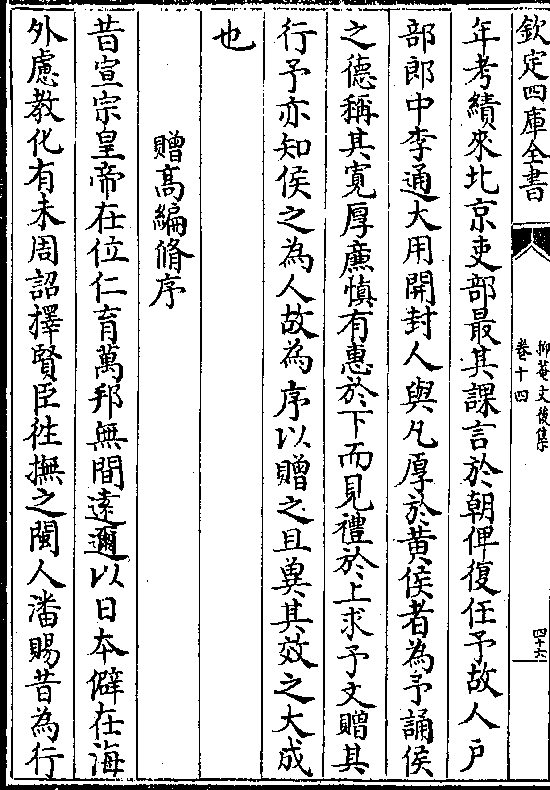 欽定四庫全書
抑菴文後集
卷十四
四十六
年考績來北京吏部最其課言於朝俾復任予故人戶
部郎中李通大用開封人與凡厚於黄侯者為予誦侯
之德稱其寛厚亷慎有惠於下而見禮於上求予文贈其
行予亦知侯之為人故為序以贈之且兾其效之大成
也
贈髙編脩序
昔宣宗皇帝在位仁育萬邦無間逺邇以日本僻在海
外慮教化有未周詔擇賢臣徃撫之閩人潘賜昔為行